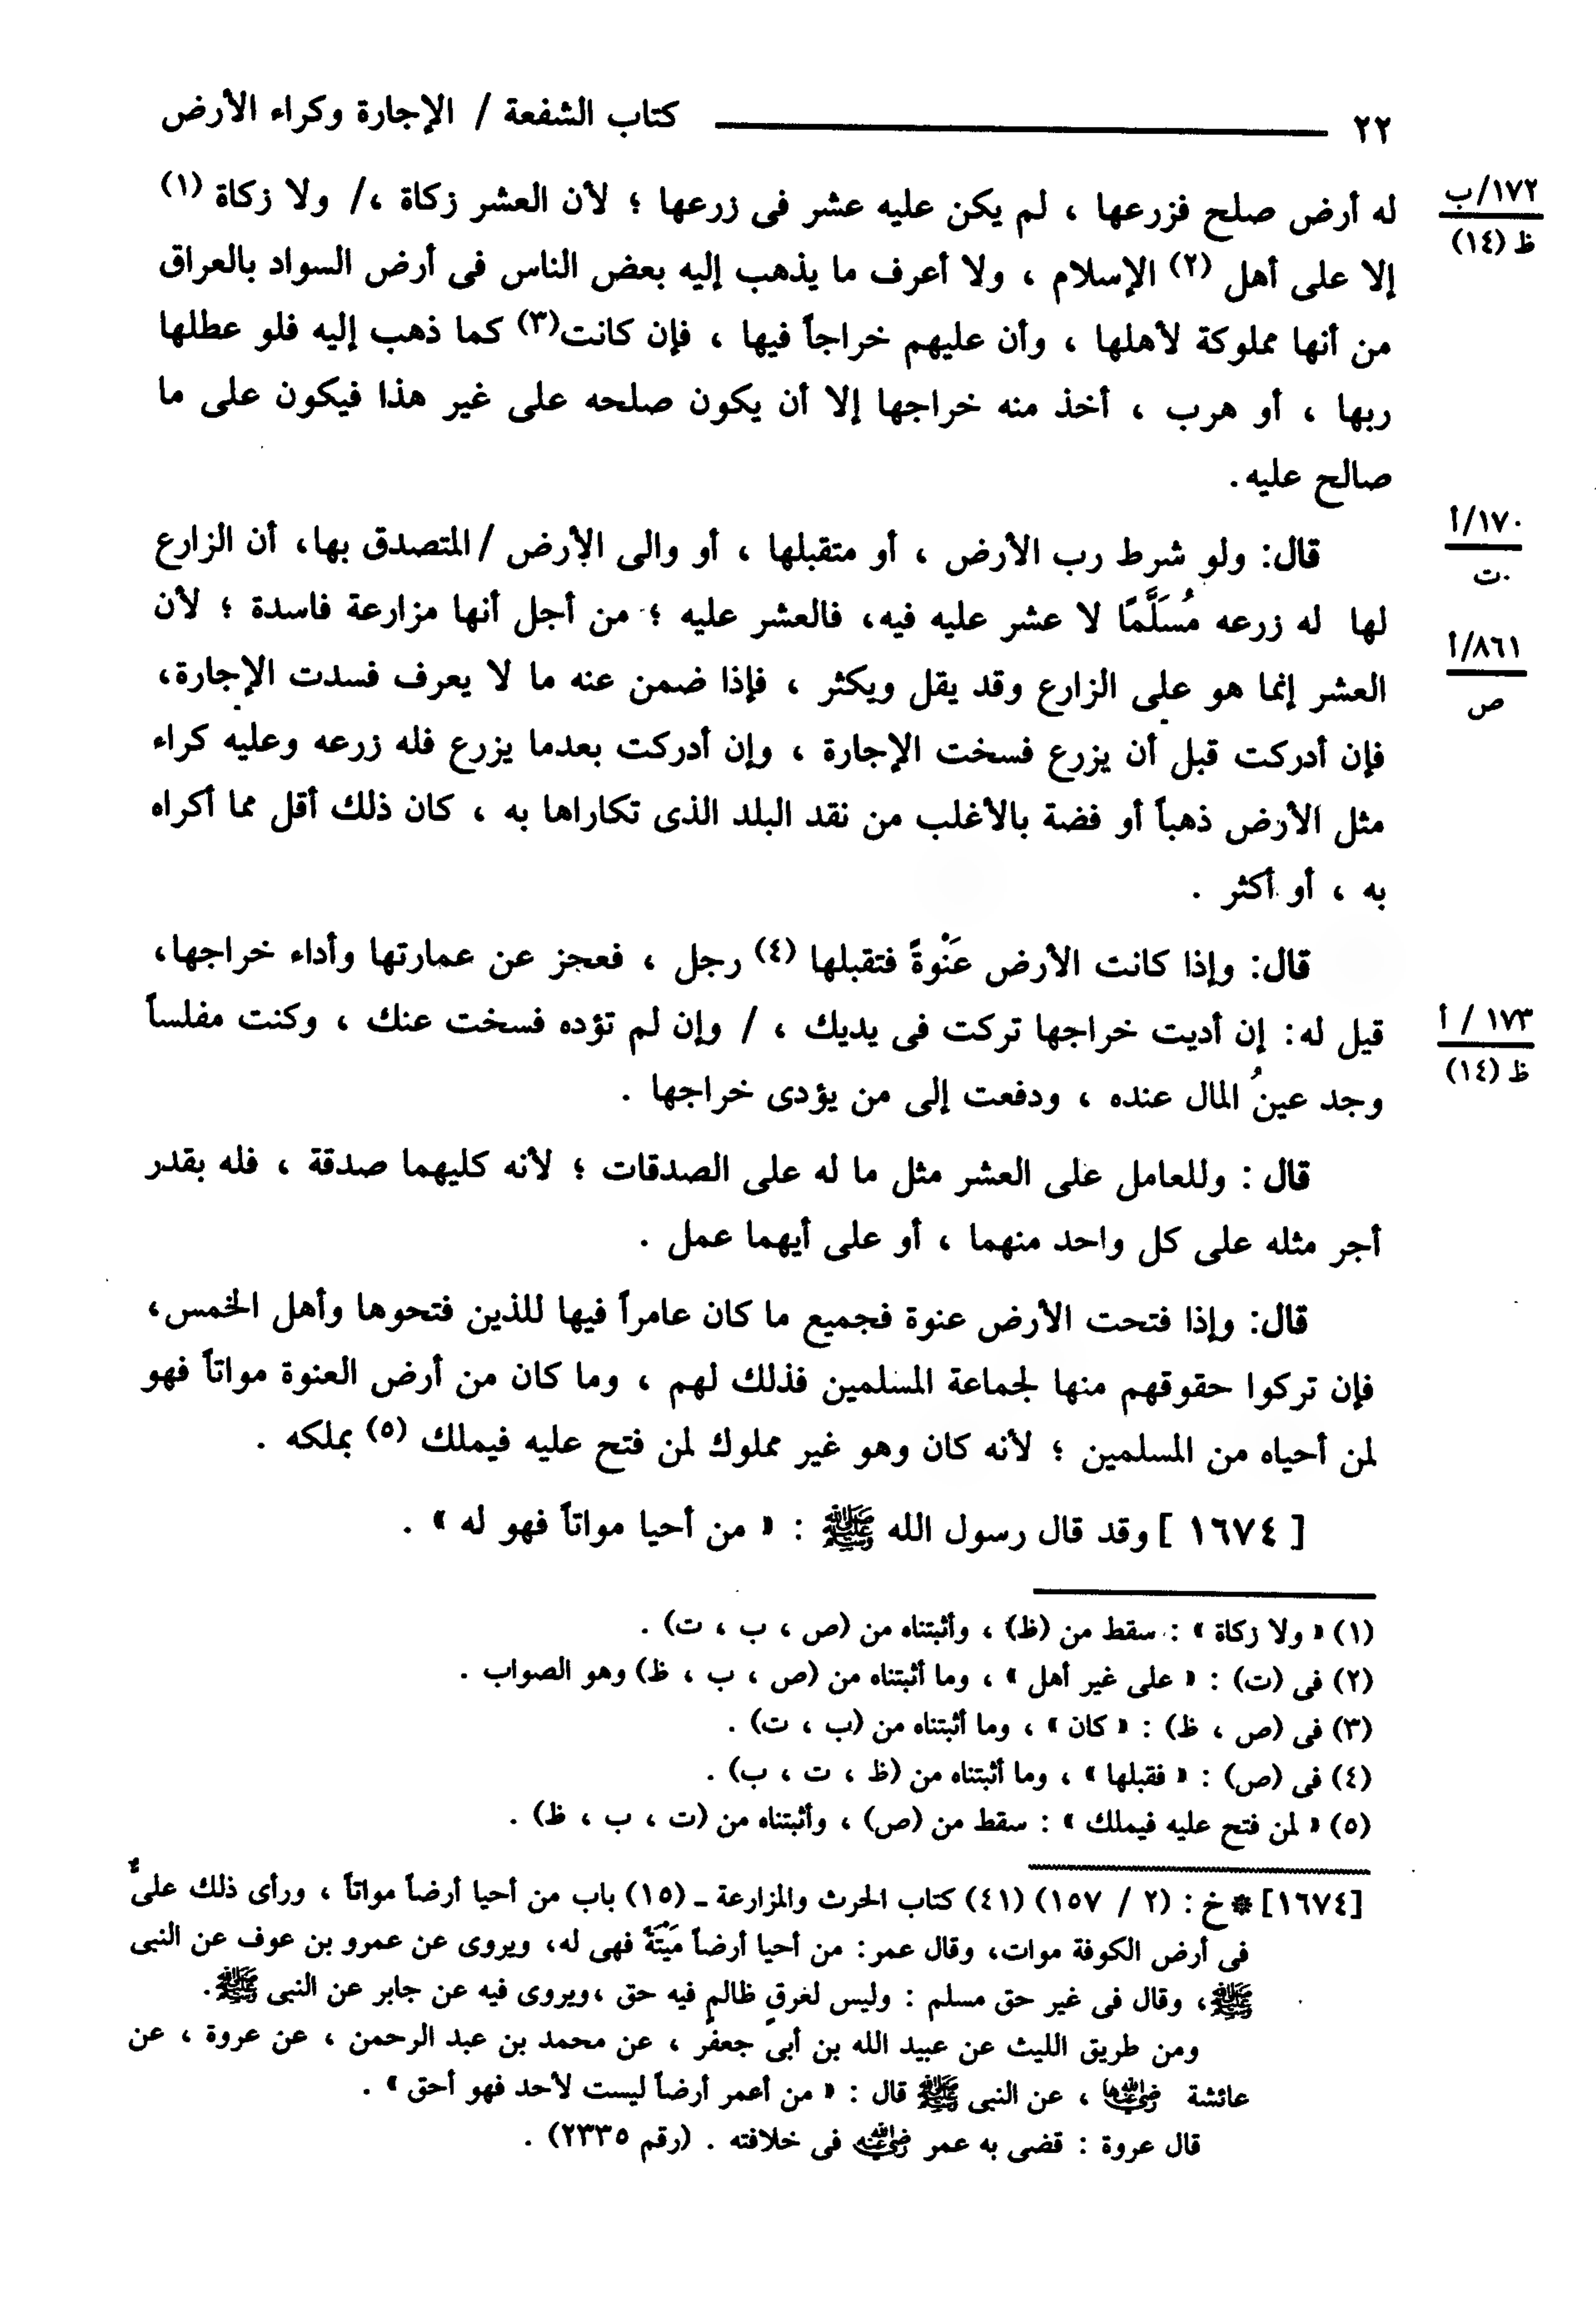 ٢٢ ــــــــــــــــــ كتاب الشفعة / الإجارة وكراء الأرض
له أرض صلح فزرعها ، لم يكن عليه عشر فى زرعها ؛ لأن العشر زكاة ،/ ولا زكاة (١)
١٧٢/ب
ظ (١٤)
إلا على أهل (٢) الإسلام ، ولا أعرف ما يذهب إليه بعض الناس فى أرض السواد بالعراق
من أنها مملوكة لأهلها ، وأن عليهم خراجاً فيها ، فإن كانت(٣) كما ذهب إليه فلو عطلها
ربها ، أو هرب ، أخذ منه خراجها إلا أن يكون صلحه على غير هذا فيكون على ما
صالح عليه.
قال: ولو شرط رب الأرض ، أو متقبلها ، أو والى الأرض /المتصدق بها، أن الزارع
١٧٠/أ
ت
لها له زرعه مُسَلَّمًا لا عشر عليه فيه، فالعشر عليه ؛ من أجل أنها مزارعة فاسدة ؛ لأن
٨٦١/أ
ص
العشر إنما هو على الزارع وقد يقل ويكثر ، فإذا ضمن عنه ما لا يعرف فسدت الإجارة،
فإن أدركت قبل أن يزرع فسخت الإجارة ، وإن أدركت بعدما يزرع فله زرعه وعليه كراء
مثل الأرض ذهباً أو فضة بالأغلب من نقد البلد الذى تكاراها به ، كان ذلك أقل مما أكراه
به ، أو أكثر .
قال: وإذا كانت الأرض عَنْوةً فتقبلها (٤) رجل ، فعجز عن عمارتها وأداء خراجها،
قيل له: إن أديت خراجها تركت فى يديك ، / وإن لم تؤده فسخت عنك ، وكنت مفلساً
١٧٣ / أ
ظ (١٤)
وجد عينُ المال عنده ، ودفعت إلى من يؤدى خراجها .
قال : وللعامل على العشر مثل ما له على الصدقات ؛ لأنه كليهما صدقة ، فله بقدر
أجر مثله على كل واحد منهما ، أو على أيهما عمل .
قال: وإذا فتحت الأرض عنوة فجميع ما كان عامراً فيها للذين فتحوها وأهل الخمس،
فإن تركوا حقوقهم منها لجماعة المسلمين فذلك لهم ، وما كان من أرض العنوة مواتاً فهو
لمن أحياه من المسلمين ؛ لأنه كان وهو غير مملوك لمن فتح عليه فيملك (٥) بملكه .
[ ١٦٧٤ ] وقد قال رسول الله ﷺ : « من أحيا مواتاً فهو له » .
(١) « ولا زكاة » : سقط من (ظ) ، وأثبتناه من (ص ، ب ، ت) .
(٢) فى (ت) : « على غير أهل » ، وما أثبتناه من (ص ، ب ، ظ) وهو الصواب .
(٣) فى (ص ، ظ) : « كان » ، وما أثبتناه من (ب ، ت) .
(٤) فى (ص) : « فقبلها » ، وما أثبتناه من (ظ ، ت ، ب) .
(٥) « لمن فتح عليه فيملك » : سقط من (ص) ، وأثبتناه من (ت ، ب ، ظ) .
[١٦٧٤] * خ : (٢ / ١٥٧) (٤١) كتاب الحرث والمزارعة ـ (١٥) باب من أحيا أرضاً مواتاً ، ورأى ذلك علىٌّ
فى أرض الكوفة موات، وقال عمر: من أحيا أرضاً مَيْتَةً فهى له، ويروى عن عمرو بن عوف عن النبى
ﷺ، وقال فى غير حق مسلم : وليس لغرقٍ ظالمٍ فيه حق ،ويروى فيه عن جابر عن النبى ﷺ.
ومن طريق الليث عن عبيد الله بن أبى جعفر ، عن محمد بن عبد الرحمن ، عن عروة ، عن
عائشة رضي الله عنها ، عن النبى ﷺ قال : « من أعمر أرضاً ليست لأحد فهو أحق » .
قال عروة : قضى به عمر رضي الله عنه فى خلافته . (رقم ٢٣٣٥) .